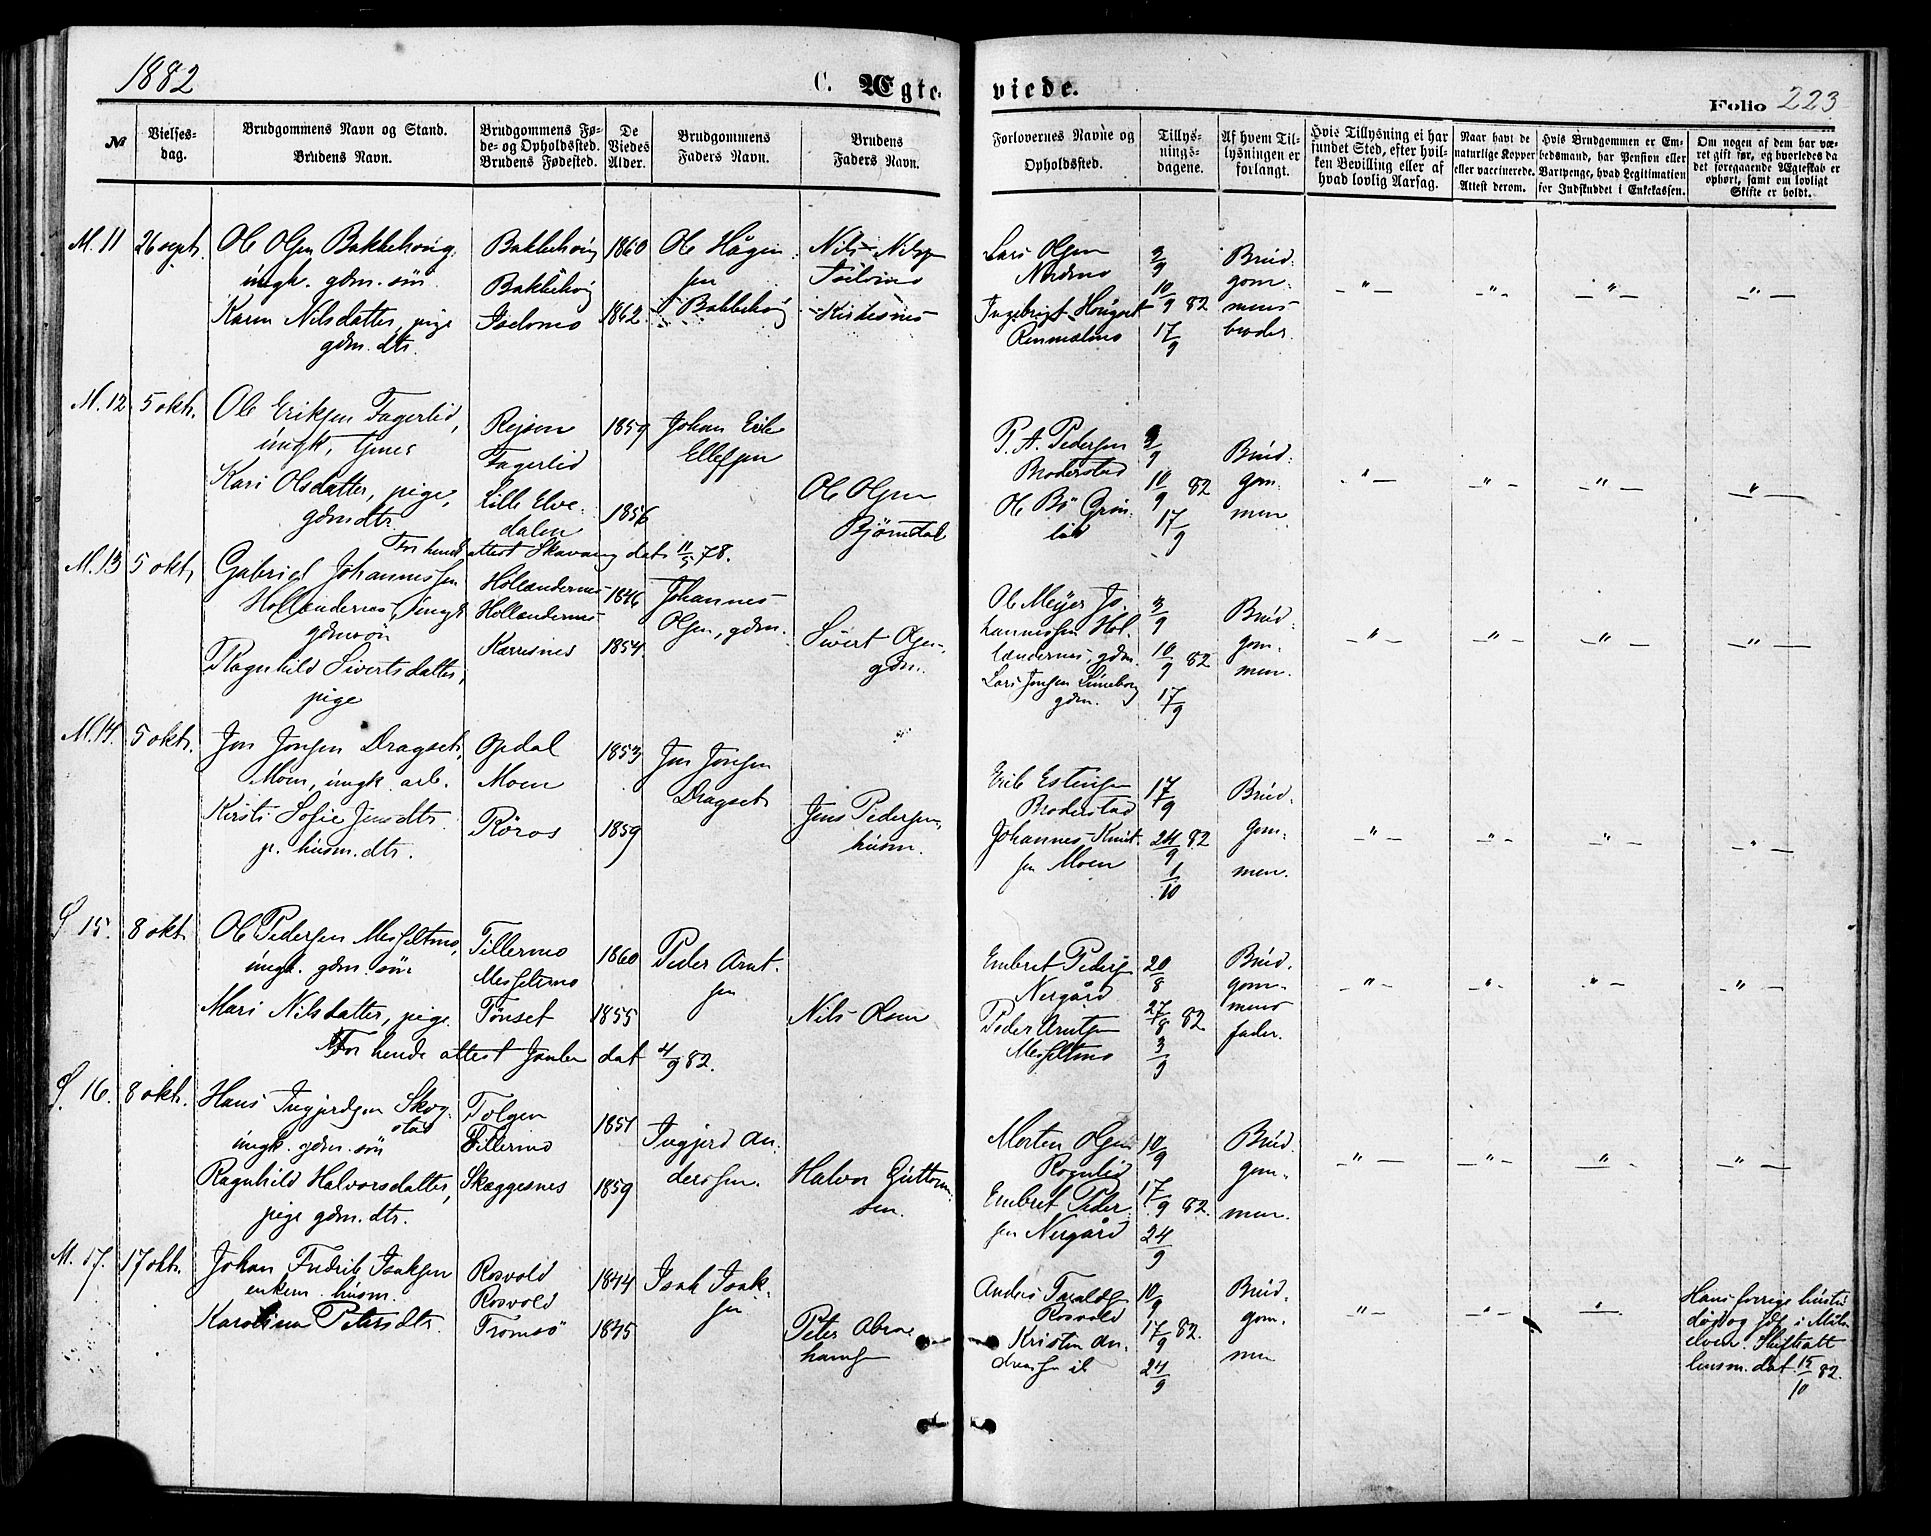 1882
C. Ægte-
viede.
Folio 223
№
Vielses-
dag.
Brudgommens Navn og Stand.
Brudens Navn.
Brudgommens Fø-
de- og Opholdssted.
Brudens Fødested.
De
Viedes
Alder.
Brudgommens
Faders Navn.
Brudens
Faders Navn.
Forlovernes Navne og
Opholdssted.
Tillys-
nings-
dagene.
Af hvem Til-
lysningen er
forlangt.
Hvis Tillysning ei har
fundet Sted, efter hvil-
ken Bevilling eller af
hvad lovlig Aarsag.
Naar havt de
naturlige Kopper
eller vaccinerede.
Attest derom.
Hvis Brudgommen er Em-
bedsmand, har Pension eller
Vartpenge, hvad Legitimation
for Indskuddet i Enkekassen.
Om nogen af dem har væ-
ret gift før, og hvorledes da
det foregaaende Ægteskab er
ophørt, samt om lovligt
Skifte er holdt.
M. 11
26 sept.
Ole Olsen Bakkehaug,
ungk. gdm. søn
Karen Nilsdatter, pige
gdm. dtr.
Bakkehaug
Bakkehaug
1860
1862
Ole
Bakkehaug
Nils Nils
Kirkesnes
Lars Olsen
Nordmo
Ingebrigt
3/9
10/9 82
17/9
Brud-
gom-
mens
broder.
M. 12
5 okt.
Ole Eriksen Fagerlid,
ungk,
Kari Olsdatter, pige,
gdm dtr.
Fagerlid
Lille Elve-
dalen
1859
1856
Johan Erik
Ellefsen
Ole Olsen
Bjørndal
P. A. Pedersen
Broderstad
Ole Bø Grøn-
lid
3/9
10/9 82
17/9
Brud-
gom-
men.
For hende attest dat. 11/5 78.
M. 13
5 okt.
Gabriel Johannessen
Hollendernes, ungk
gdm søn
Ragnhild Sivertsdatter,
pige
Hollendernes
Hollendernes
Karresnes
1846
1854
Johannes
Olsen, gdm.
Sivert Olsen,
gdm.
Ole Meyer Jo-
hannessen Hol-
lendernes, gdm.
Lars Jonsen
gdm.
3/9
10/9 82
17/9
Brud-
gom-
men.
M. 14.
5 okt.
Jon Jonsen Dragset,
Moen, ungk. arb.
Kirsti Sofie Jensdtr.
p. husm. dtr.
Opdal
Moen
Røros
1853
1859
Jon Jonsen
Dragset
Jens Pedersen,
husm.
Erik Estensen
Broderstad
Johannes Knut-
sen Moen
17/9
24/9 82
1/10
Brud-
gom-
men.
S. 15.
8 okt.
Ole Pedersen Messeltmo,
ungk. gdm. søn
Mari Nilsdatter, pige.
Tillermo
Messeltmo
Tønset
1860
1855
Peder Arnt-
sen
Nils Olsen
Embret Peders
Nergård
Peder Arntsen
Messeltmo
20/8
27/8 82
3/9
Brud-
gom-
mens
fader.
For hende attest dat 4/9 82.
S. 16.
8 okt.
Hans Ingjerdsen Skog-
stad
ungk. gdm. søn
Ragnhild Halvorsdatter,
pige gdm. dtr.
Tolgen
Tillermo
Skæggesnes
1851
1859
Ingjerd An-
dersen.
Halvor Guttorm-
sen.
Morten Olsen
Rognlid
Embret Peder-
sen Nergård
10/9
17/9 82.
24/9
Brud-
gom-
men.
M. 17.
17 okt.
Johan Fredrik Isaksen
enkem. husm.
Karolina Petersdtr.
Rosvold
Rosvold
Tromsø
1844
1845
Isak Isak-
sen
Peter Abra-
hamsen
Anders Taralds
Rosvold
Kristen An-
dreassen
10/9
17/9 82.
24/9
Brud-
gom-
men
Hans forrige hustru
død og
Skifteatt
lensm. dat. 15/10 82.